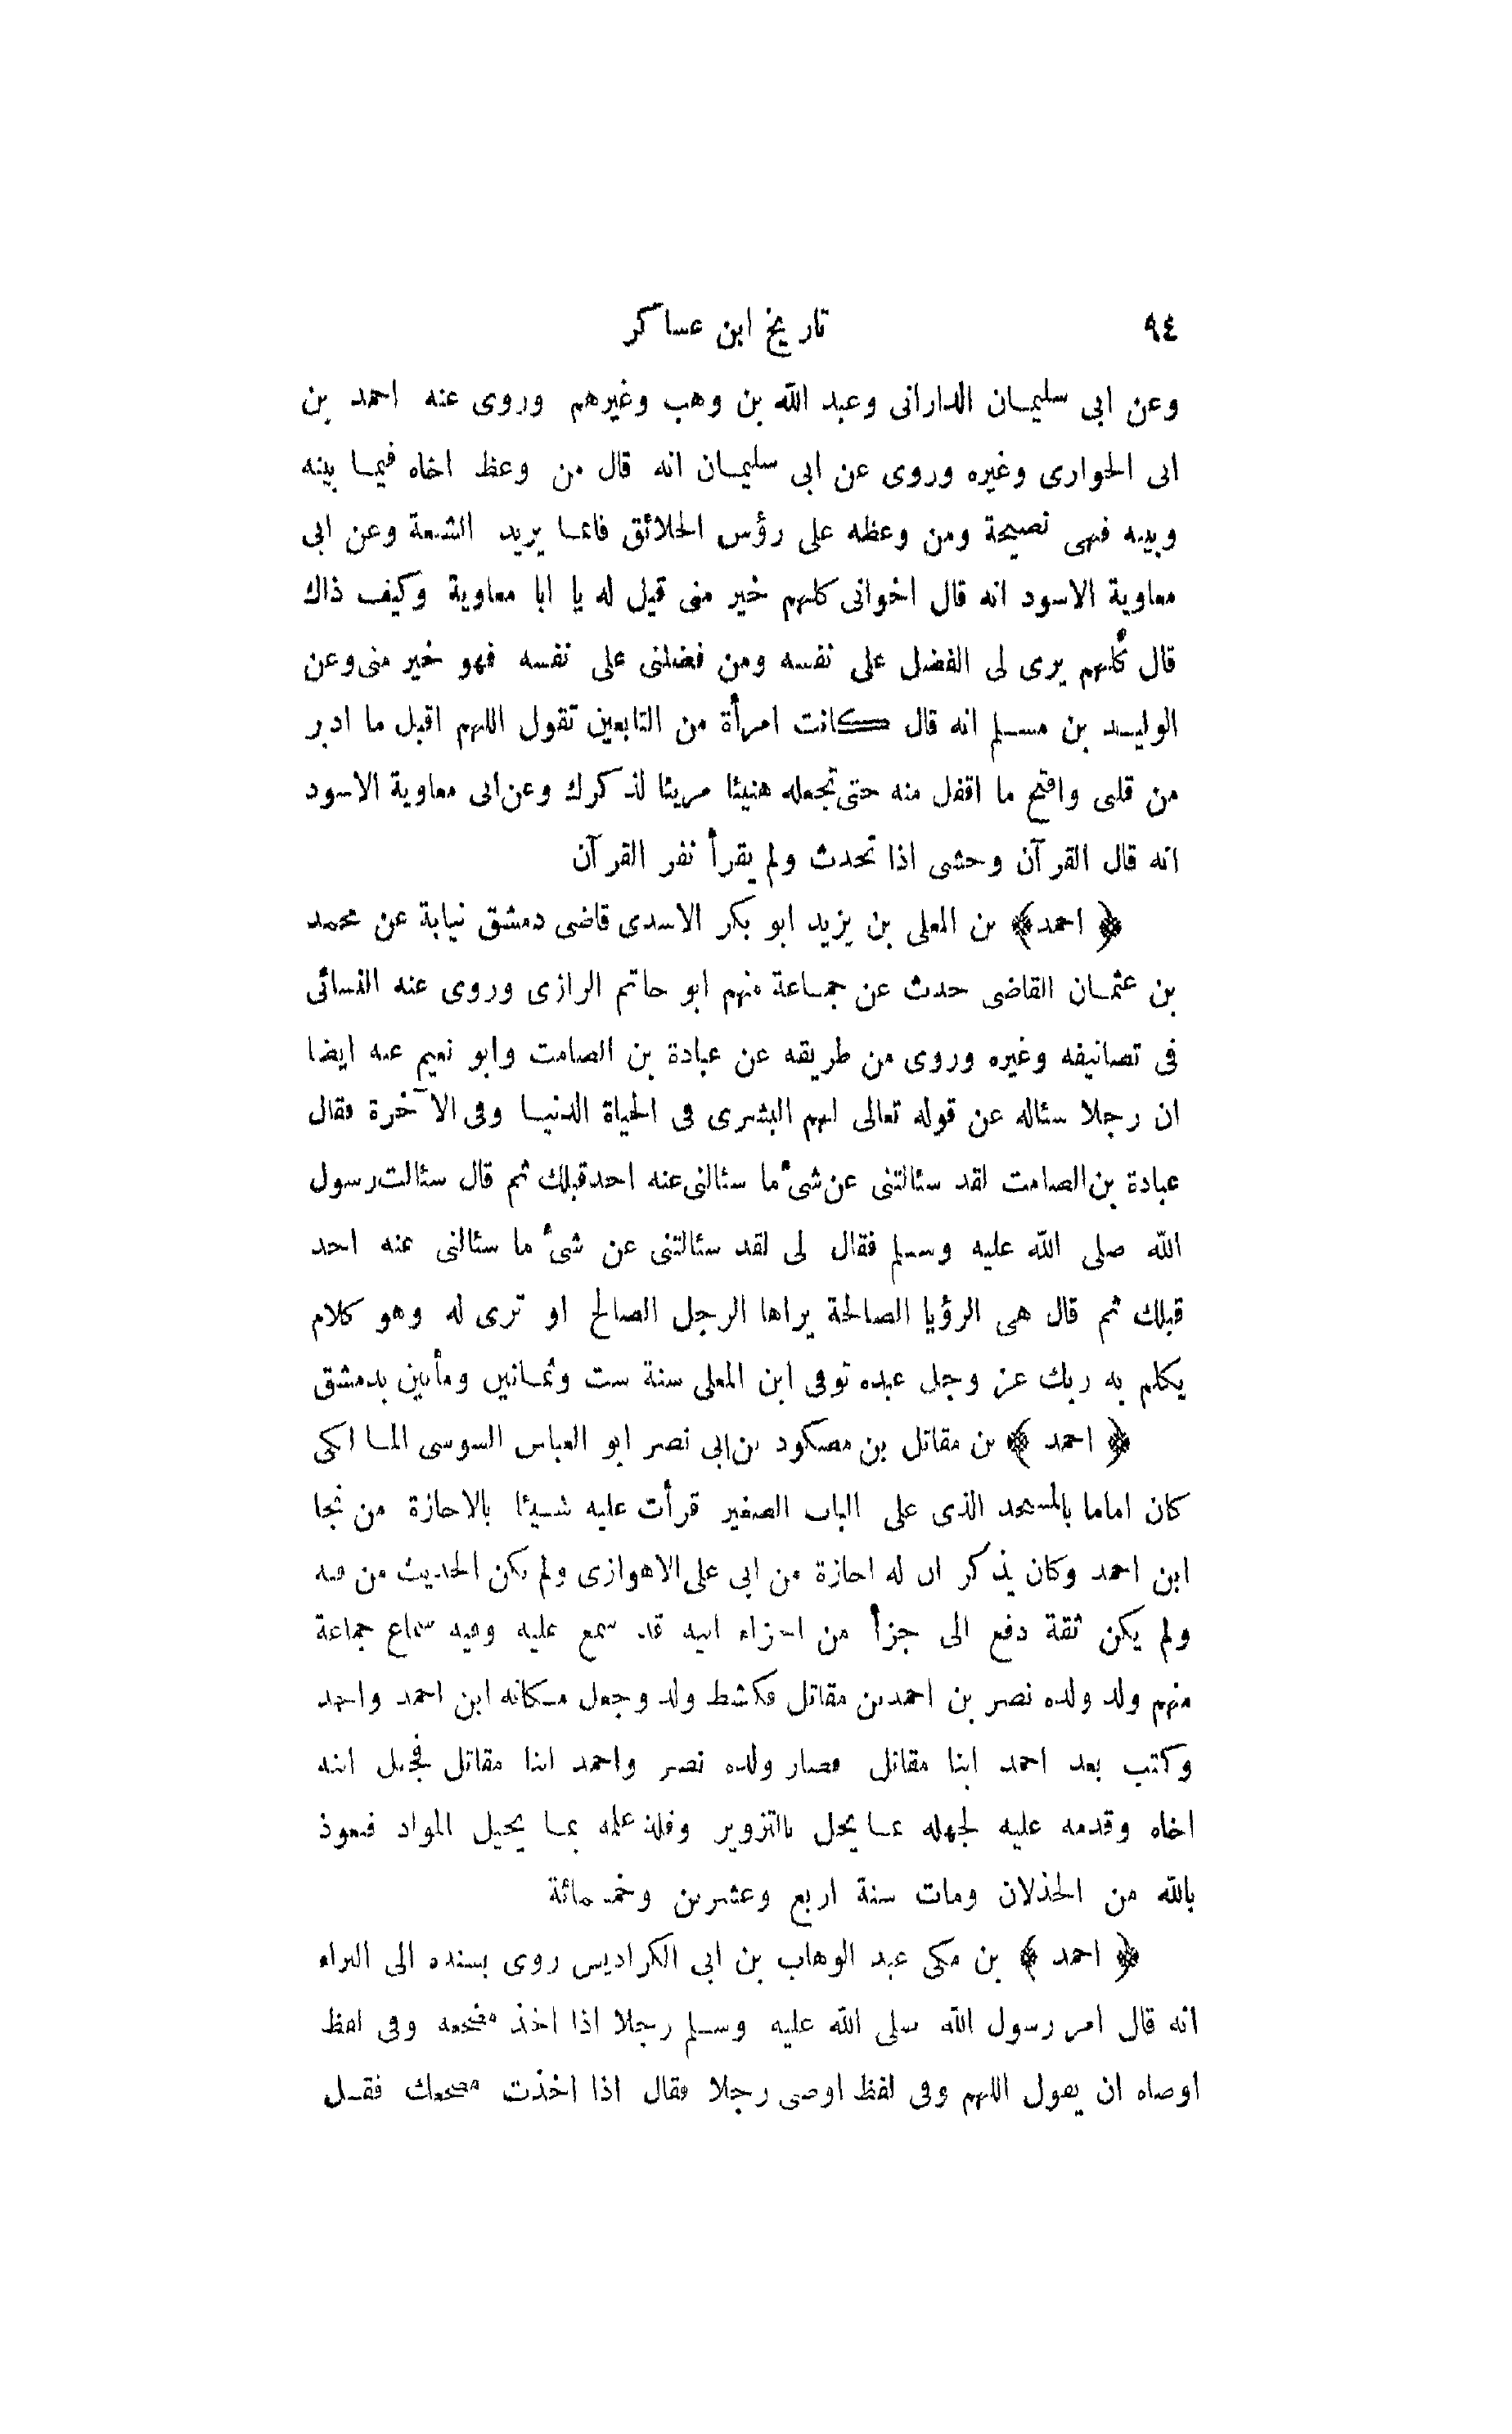 ٩٤ تاريخ ابن عساكر
وعن ابى سليمان الدارانى وعبد الله بن وهب وغيرهم وروى عنه احمد بن
ابى الحوارى وغيره وروى عن ابى سليمان انه قال من وعظ اخاه فيما بينه
وبينه فهى نصيحة ومن وعظه على رؤس الخلائق فانما يريد الشنعة وعن ابى
معاوية الاسود انه قال اخوانى كلهم خير منى قيل له يا ابا معاوية وكيف ذاك
قال كلهم يرى لى الفضل على نفسه ومن فضلنى على نفسه فهو خير منى وعن
الوليد بن مسلم انه قال كانت امرأة من التابعين تقول اللهم اقبل ما ادبر
من قلبى وافتح ما اقفل منه حتى تجعله هنيئا مريئا لذكرك وعن ابى معاوية الاسود
انه قال القرآن وحشى اذا تحدث ولم يقرأ نفر القرآن
﴿ احمد ﴾ بن المعلى بن يزيد ابو بكر الاسدى قاضى دمشق نيابة عن محمد
بن عثمان القاضى حدث عن جماعة منهم ابو حاتم الرازى وروى عنه النسائى
فى تصانيفه وغيره وروى من طريقه عن عبادة بن الصامت وابو نعيم عنه ايضا
ان رجلا سئاله عن قوله تعالى لهم البشرى فى الحياة الدنيا وفى الآخرة فقال
عبادة بن الصامت لقد سئالتنى عن شئ ما سئالنى عنه احد قبلك ثم قال سئالت رسول
الله صلى الله عليه وسلم فقال لى لقد سئالتنى عن شئ ما سئالنى عنه احد
قبلك ثم قال هى الرؤيا الصالحة يراها الرجل الصالح او ترى له وهو كلام
يكلم به ربك عز وجل عبده توفى ابن المعلى سنة ست وثمانين ومأتين بدمشق
﴿ احمد ﴾ بن مقاتل بن مصكود بن ابى نصر ابو العباس السوسى المالكى
كان اماما بالمسجد الذى على الباب الصغير قرأت عليه شيئا بالاجازة من نجا
ابن احمد وكان يذكر ان له اجازة من ابى على الاهوازى ولم يكن الحديث من فنه
ولم يكن ثقة دفع الى جزأ من اجزاء ابيه قد سمع عليه وفيه سماع جماعة
منهم ولد ولده نصر بن احمد بن مقاتل فكشط ولد وجعل مكانه ابن احمد واحمد
وكتب بعد احمد ابنا مقاتل فصار ولده نصر واحمد ابنا مقاتل فجعل ابنه
اخاه وقدمه عليه لجهله بما يحل بالتزوير وقلة علمه بما يحيل المواد فنعوذ
بالله من الخذلان ومات سنة اربع وعشرين وخمسمائة
﴿ احمد ﴾ بن مكى عبد الوهاب بن ابى الكراديس روى بسنده الى البراء
انه قال امر رسول الله صلى الله عليه وسلم رجلا اذا اخذ مضجعه وفى لفظ
اوصاه ان يقول اللهم وفى لفظ اوصى رجلا فقال اذا اخذت مضجعك فقل